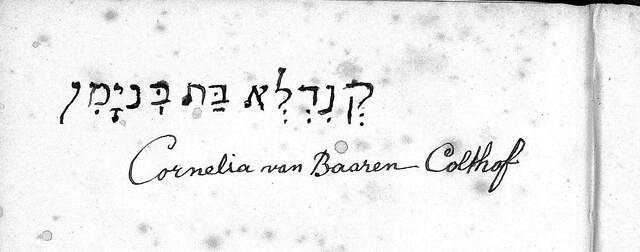 קֶנְדְלְא בַּת בִּנְיָמִן
Cornelia van Baaren Colthof